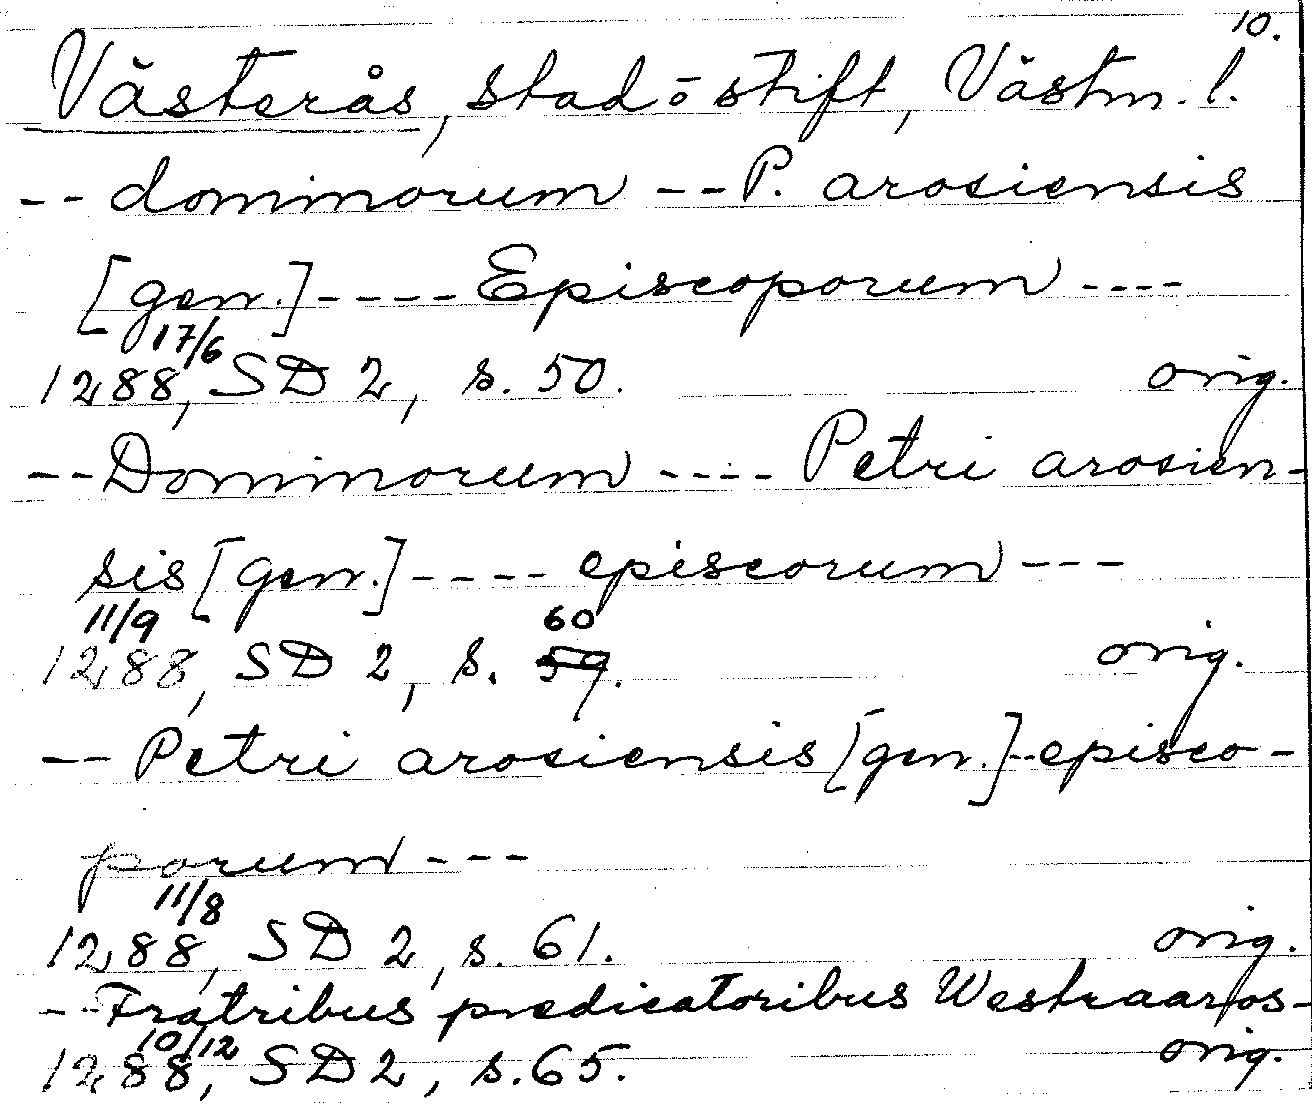 10.
Västerås, stad o stift, Västm. l.
-- dominorum -- P. arosiensis
[gen.] ---- Episcoporum ----
17/6
1288, SD 2, s. 50. orig.
-- Dominorum ---- Petri arosien-
sis [gen.] ---- episcorum ---
11/9
60
1288, SD 2, s. 59. orig.
-- Petri arosiensis [gen.] -- episco-
porum ---
11/8
1288, SD 2, s. 61. orig.
-- Fratribus predicatoribus Westraaros-
10/12
1288, SD 2, s. 65. orig.